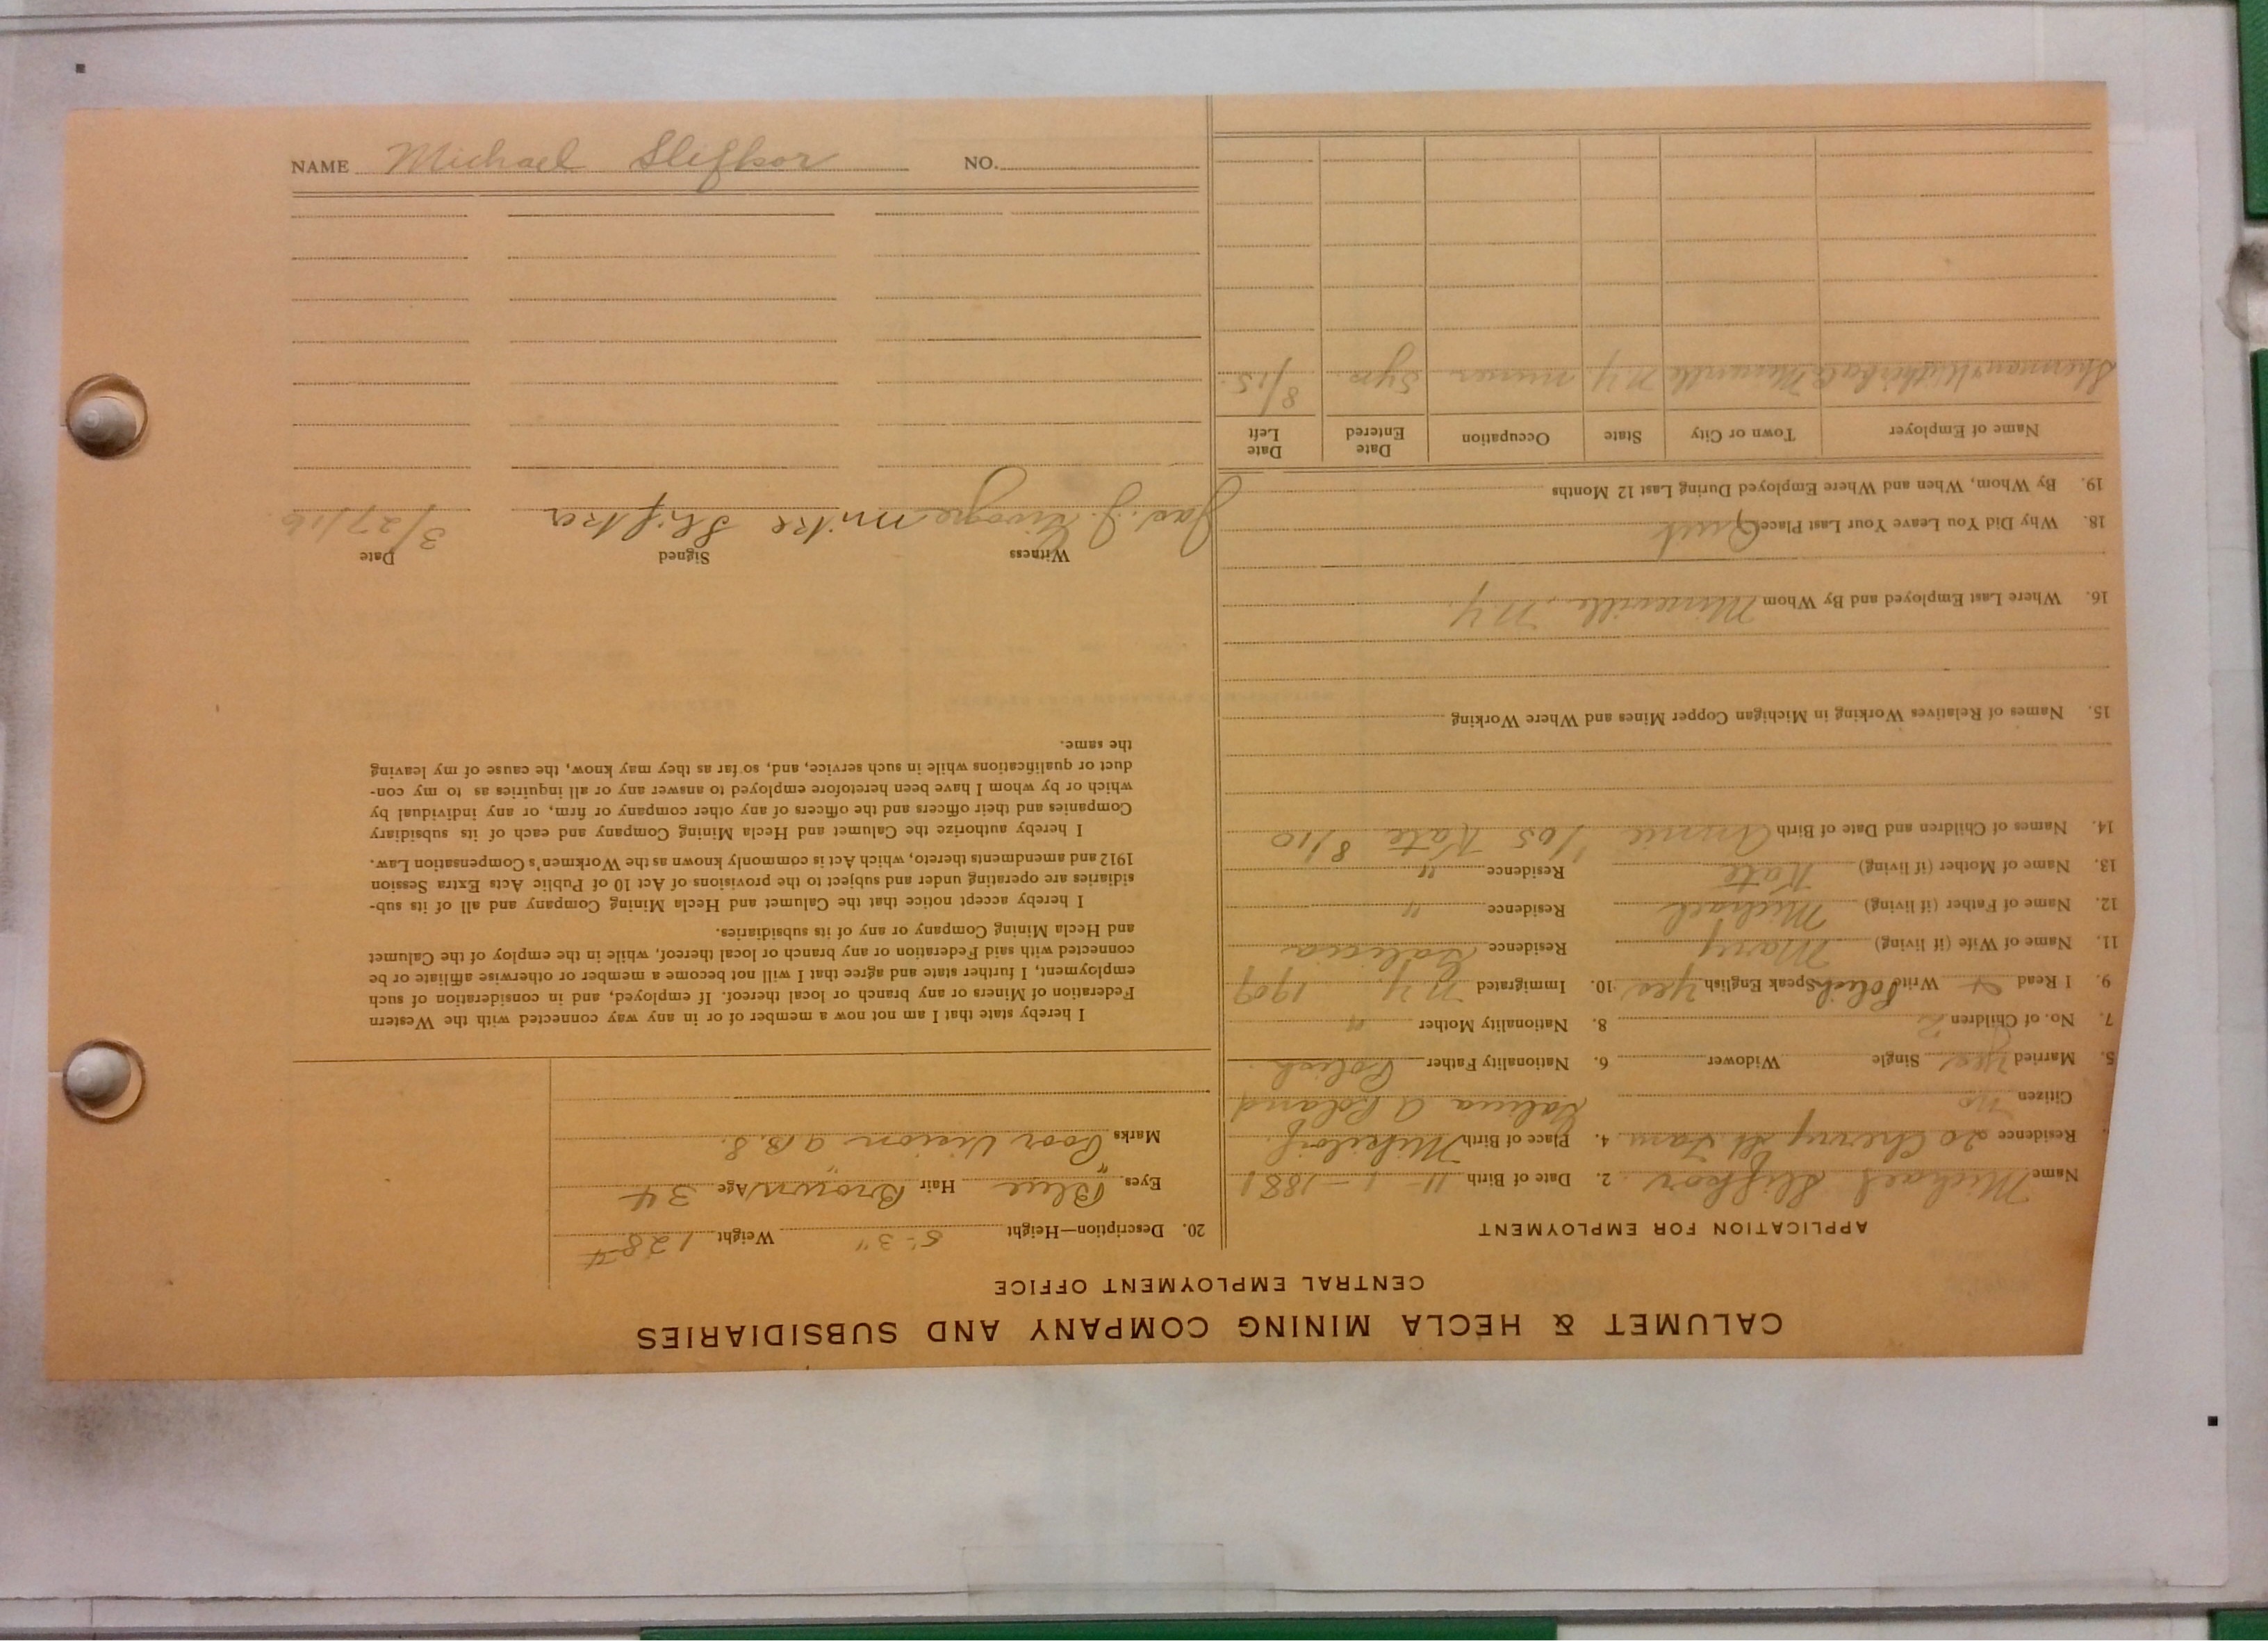 CALUMET & HECLA MINING COMPANY AND SUBSIDIARIES
CENTRAL EMPLOYMENT OFFICE
APPLICATION FOR EMPLOYMENT
Name Michael Slifkor 2. Date of Birth 11-1-1881
Residence 20 Cherry St 4. Place of Birth
Citizen no Poland
5. Married yes Single Widower 6. Nationality Father Polish
7. No. of Children 2 8. Nationality Mother "
9. I Read Write Polish Speak English yes 10. Immigrated N.Y. 1909
11. Name of Wife (if living) Mary Residence Galicia
12. Name of Father (if living) Michael Residence "
13. Name of Mother (if living) Kate Residence "
14. Names of Children and Date of Birth Annie 1/05 Kate 8/10
15. Names of Relatives Working in Michigan Copper Mines and Where Working
16. Where Last Employed and By Whom Mineville, N.Y.
18. Why Did You Leave Your Last Place Quit
19. By Whom, When and Where Employed During Last 12 Months
Name of Employer Town or City State Occupation Date Entered Date Left
Sherman Mineville N.Y. miner 5 yrs. 8/15.
20. Description—Height 5'-3" Weight 128
Eyes Blue Hair Brown Age 34
Marks Poor Vision
I hereby state that I am not now a member of or in any way connected with the Western
Federation of Miners or any branch or local thereof. If employed, and in consideration of such
employment, I further state and agree that I will not become a member or otherwise affiliate or be
connected with said Federation or any branch or local thereof, while in the employ of the Calumet
and Hecla Mining Company or any of its subsidiaries.
I hereby accept notice that the Calumet and Hecla Mining Company and all of its sub-
sidiaries are operating under and subject to the provisions of Act 10 of Public Acts Extra Session
1912 and amendments thereto, which Act is commonly known as the Workmen's Compensation Law.
I hereby authorize the Calumet and Hecla Mining Company and each of its subsidiary
Companies and their officers and the officers of any other company or firm, or any individual by
which or by whom I have been heretofore employed to answer any or all inquiries as to my con-
duct or qualifications while in such service, and, so far as they may know, the cause of my leaving
the same.
Witness Signed Date
Jas. J. Mike Slifkor 3/27/16
NAME Michael Slifkor NO.